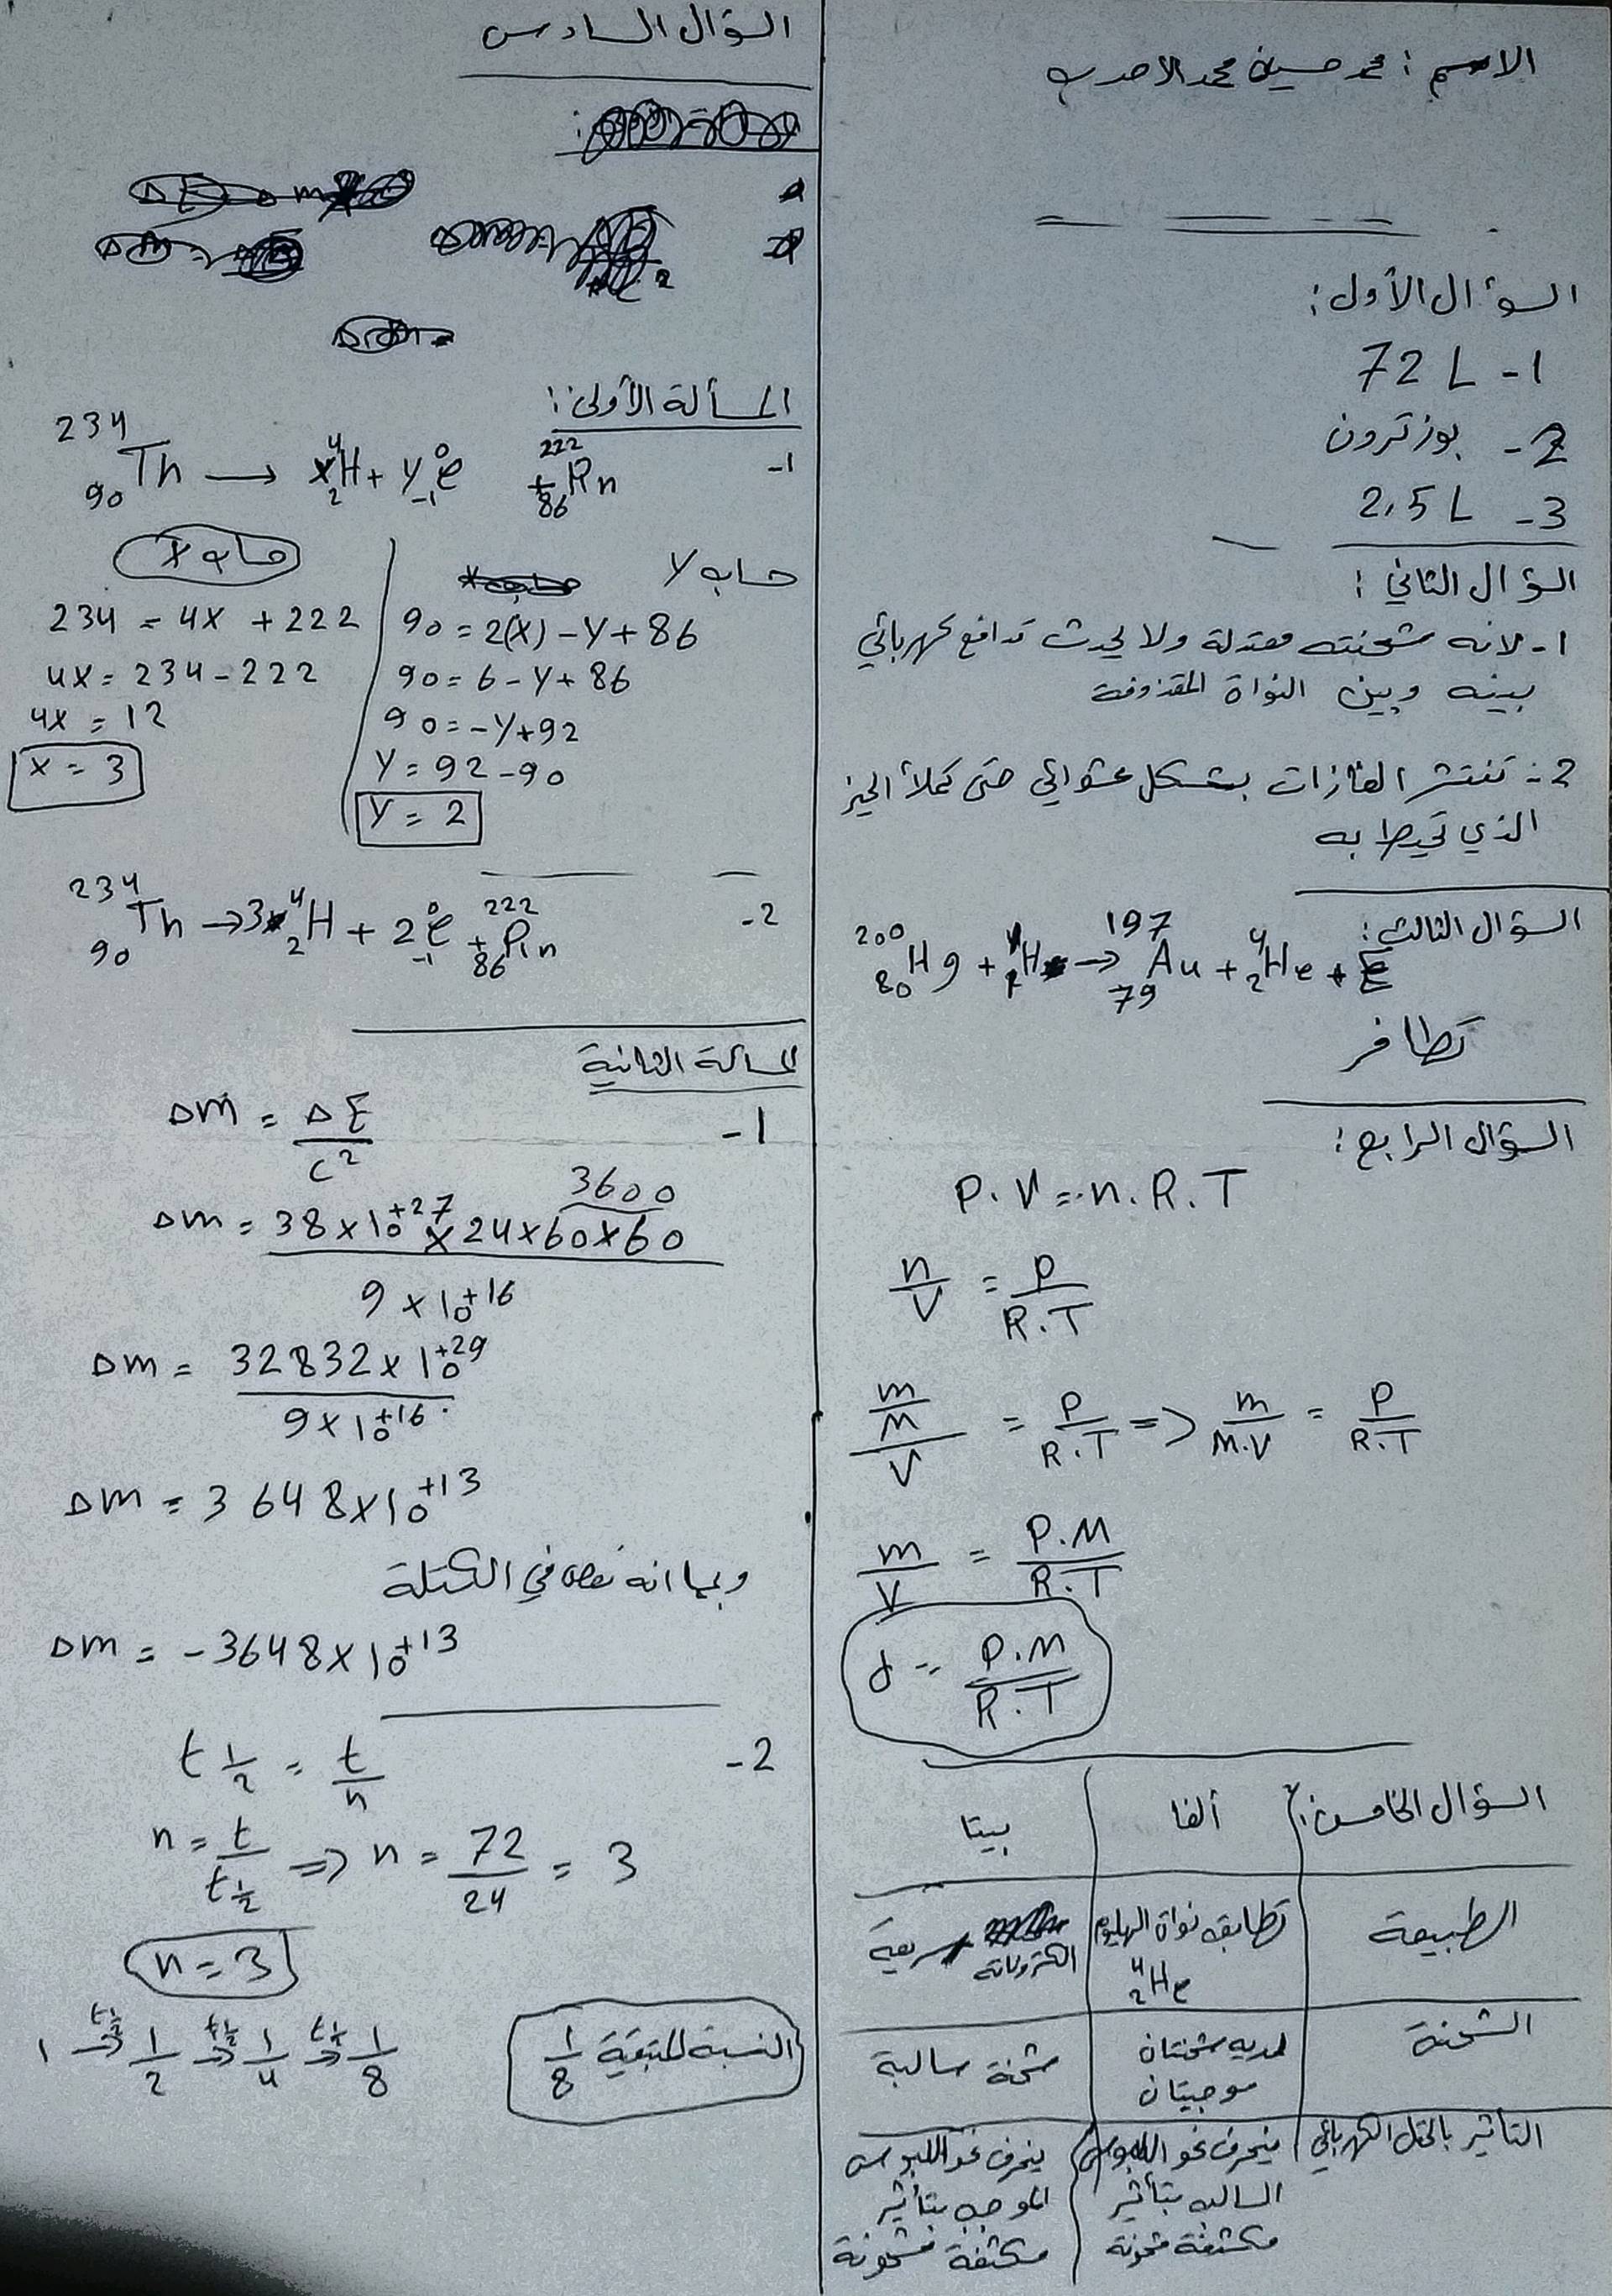 الاسم : محمد حسين محمد الاحدب
السؤال الأول :
1- 72 L
2- بوزترون
3- 2,5 L
السؤال الثاني :
1- لانه شحنته معتدلة ولا يحدث تدافع كهربائي
بينه وبين النواة المقذوفة
2- تنتشر الغازات بشكل عشوائي حتى تملأ الحيز
الذي تحيط به
السؤال الثالث :
²⁰⁰₈₀Hg + H → ¹⁹⁷₇₉Au + ⁴₂He + E
تطافر
السؤال الرابع :
P.V = n.R.T
n/V = P/R.T
(m/M)/V = P/R.T => m/M.V = P/R.T
m/V = P.M/R.T
d = P.M/R.T
السؤال الخامس : ألفا بيتا
الطبيعة تطابق نواة الهليوم ⁴₂He الكترونات سريعة
الشحنة لديه شحنتان موجبتان شحنة سالبة
التأثير بالحقل الكهربائي ينحرف نحو اللبوس السالب بتأثير مكثفة مشحونة ينحرف نحو اللبوس الموجب بتأثير مكثفة مشحونة
السؤال السادس
المسألة الأولى :
1- ²³⁴₉₀Th → x⁴₂H + y⁰₋₁e + ²²²₈₆Rn
حساب x
234 = 4x + 222
4x = 234 - 222
4x = 12
x = 3
حساب y
90 = 2(x) - y + 86
90 = 6 - y + 86
90 = -y + 92
y = 92 - 90
y = 2
2- ²³⁴₉₀Th → 3⁴₂H + 2⁰₋₁e + ²²²₈₆Rn
المسألة الثانية
1- Δm = ΔE/c²
3600
Δm = 38 × 10⁺²⁷ × 24 × 60 × 60 / 9 × 10⁺¹⁶
Δm = 32832 × 10⁺²⁹ / 9 × 10⁺¹⁶
Δm = 3648 × 10⁺¹³
وبما انه نقص في الكتلة
Δm = -3648 × 10⁺¹³
2- t½ = t/n
n = t/t½ => n = 72/24 = 3
n = 3
1 →(t½) 1/2 →(t½) 1/4 →(t½) 1/8
النسبة المتبقية 1/8